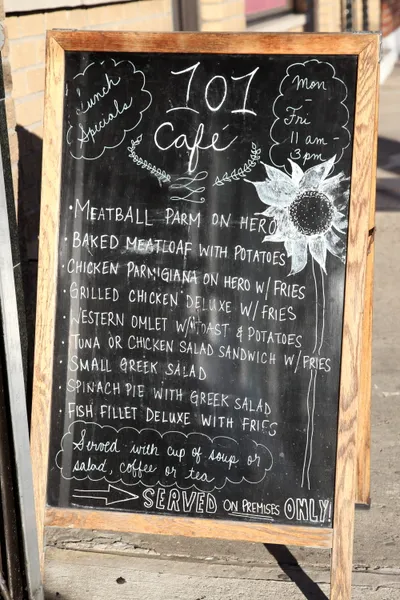 Lunch
Specials
101
Café
Mon
-
Fri
11 am
-
3pm
• MEATBALL PARM ON HERO
• BAKED MEATLOAF WITH POTATOES
• CHICKEN PARMIGIANA ON HERO W/ FRIES
• GRILLED CHICKEN DELUXE W/ FRIES
• WESTERN OMLET W/TOAST & POTATOES
• TUNA OR CHICKEN SALAD SANDWICH W/ FRIES
• SMALL GREEK SALAD
• SPINACH PIE WITH GREEK SALAD
• FISH FILLET DELUXE WITH FRIES
Served with cup of soup or
salad, coffee or tea
SERVED ON PREMISES ONLY!